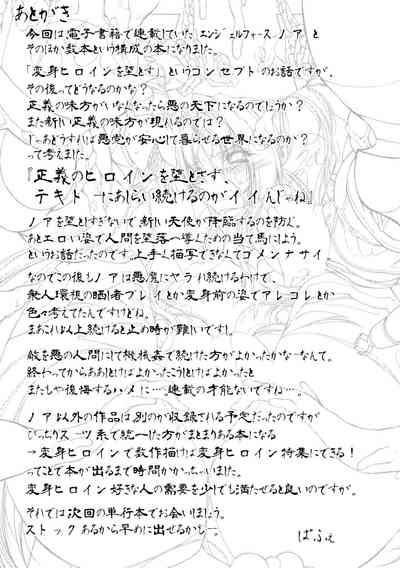 あとがき
今回は電子書籍で連載していたエンジェルフォース ノアと
そのほか数本という構成の本になりました。
「変身ヒロインを堕とす」というコンセプトのお話ですが、
その後ってどうなるのかな?
正義の味方がいなくなったら悪の天下になるのでしょうか?
また新しい正義の味方が現れるのでは?
じゃあどうすれば悪党が安心して暮らせる世界になるのか?
って考えました。
『正義のヒロインを堕とさず、
テキトーにあしらい続けるのがイイんじゃね』
ノアを堕としすぎないで新しい天使が降臨するのを防ぐ。
あとエロい姿で人間を堕落へ導くための当て馬にしよう。
というお話だったのです。上手く描写できなくてゴメンナサイ。
なのでこの後もノアは悪魔にヤラれ続けるわけで、
衆人環視の晒し者プレイとか変身前の姿でアレコレとか
色々考えてたんですけどね。
まあこれ以上続けると止め時が難しいですし
敵を悪の人間にして機械姦で続けた方がよかったかなーなんて。
終わってからああとけばよかったこうしとけばよかったと
またしても後悔するハメに…連載の才能ないですね…。
ノア以外の作品は別のが収録される予定だったのですが
ぴっちりスーツ系で統一した方がまとまりある本になる
→変身ヒロインで数作描けば変身ヒロイン特集にできる!
ってことで本が出るまで時間かかっちゃいました。
変身ヒロイン好きな人の需要を少しでも満たせると良いのですが。
それでは次回の単行本でお会いしましょう。
ストックあるから早めに出せるかもー。
ぱふぇ